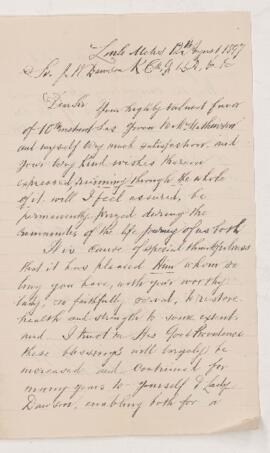 Little Metis 12th August 1897
Sir J. W. Dawson K.C.M.G. L.L.D. &c &c
Dear Sir Your highly valued favor
of 10th instant has given Mrs Mathewson
and myself very much satisfaction and
Your very kind wishes therein
expressed running through the whole
of it will I feel assured, be
permanently prized during the
remainder of the life journey of us both
It is cause of special thankfulness
that it has pleased Him whom so
long you have, with your worthy
lady, so faithfully served, to restore
health and strength to some extent
and I trust in His Good Providence
these blessings will largely be
increased and continued for
many years to yourself & Lady
Dawson, enabling both for a